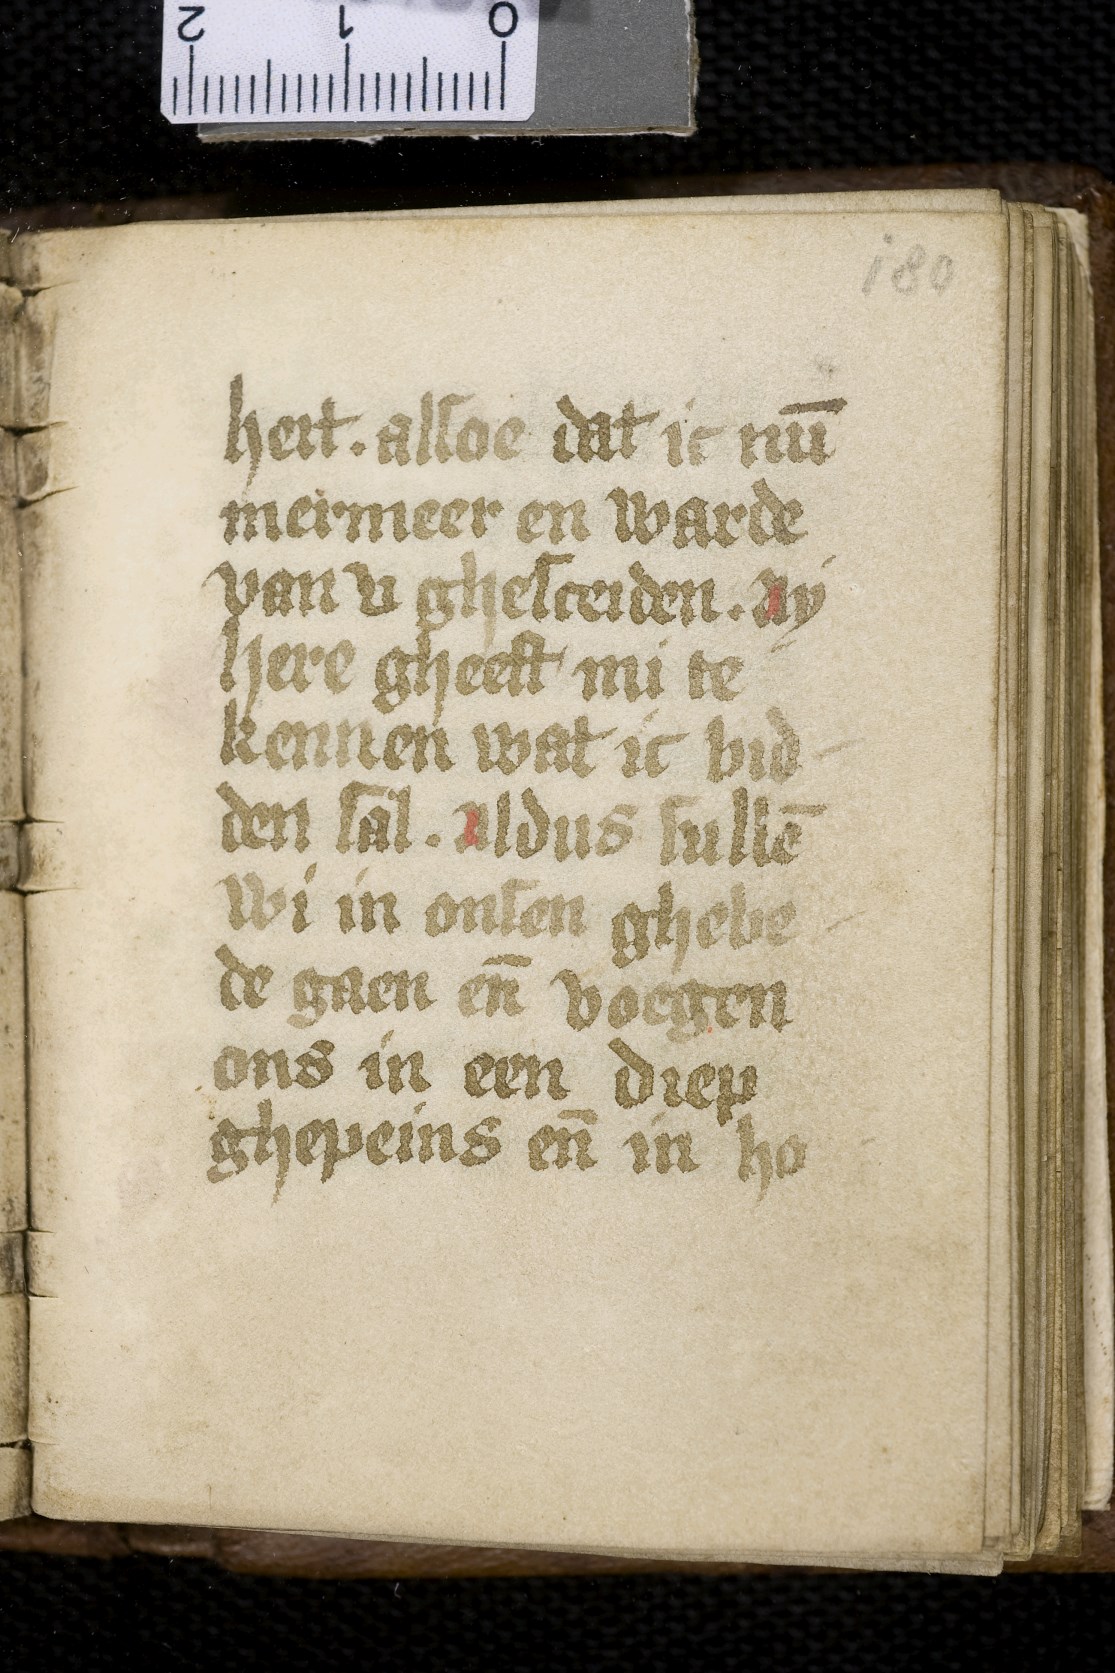 2 1 0
180
heit. alsoe dat ic nū
meirmeer en warde
van v ghesceiden. Aÿ
here gheeft mi te
kennen wat ic bid
den sal. Aldus sullē
wi in onsen ghebe
de gaen en̄ voegen
ons in een diep
ghepeins en̄ in ho